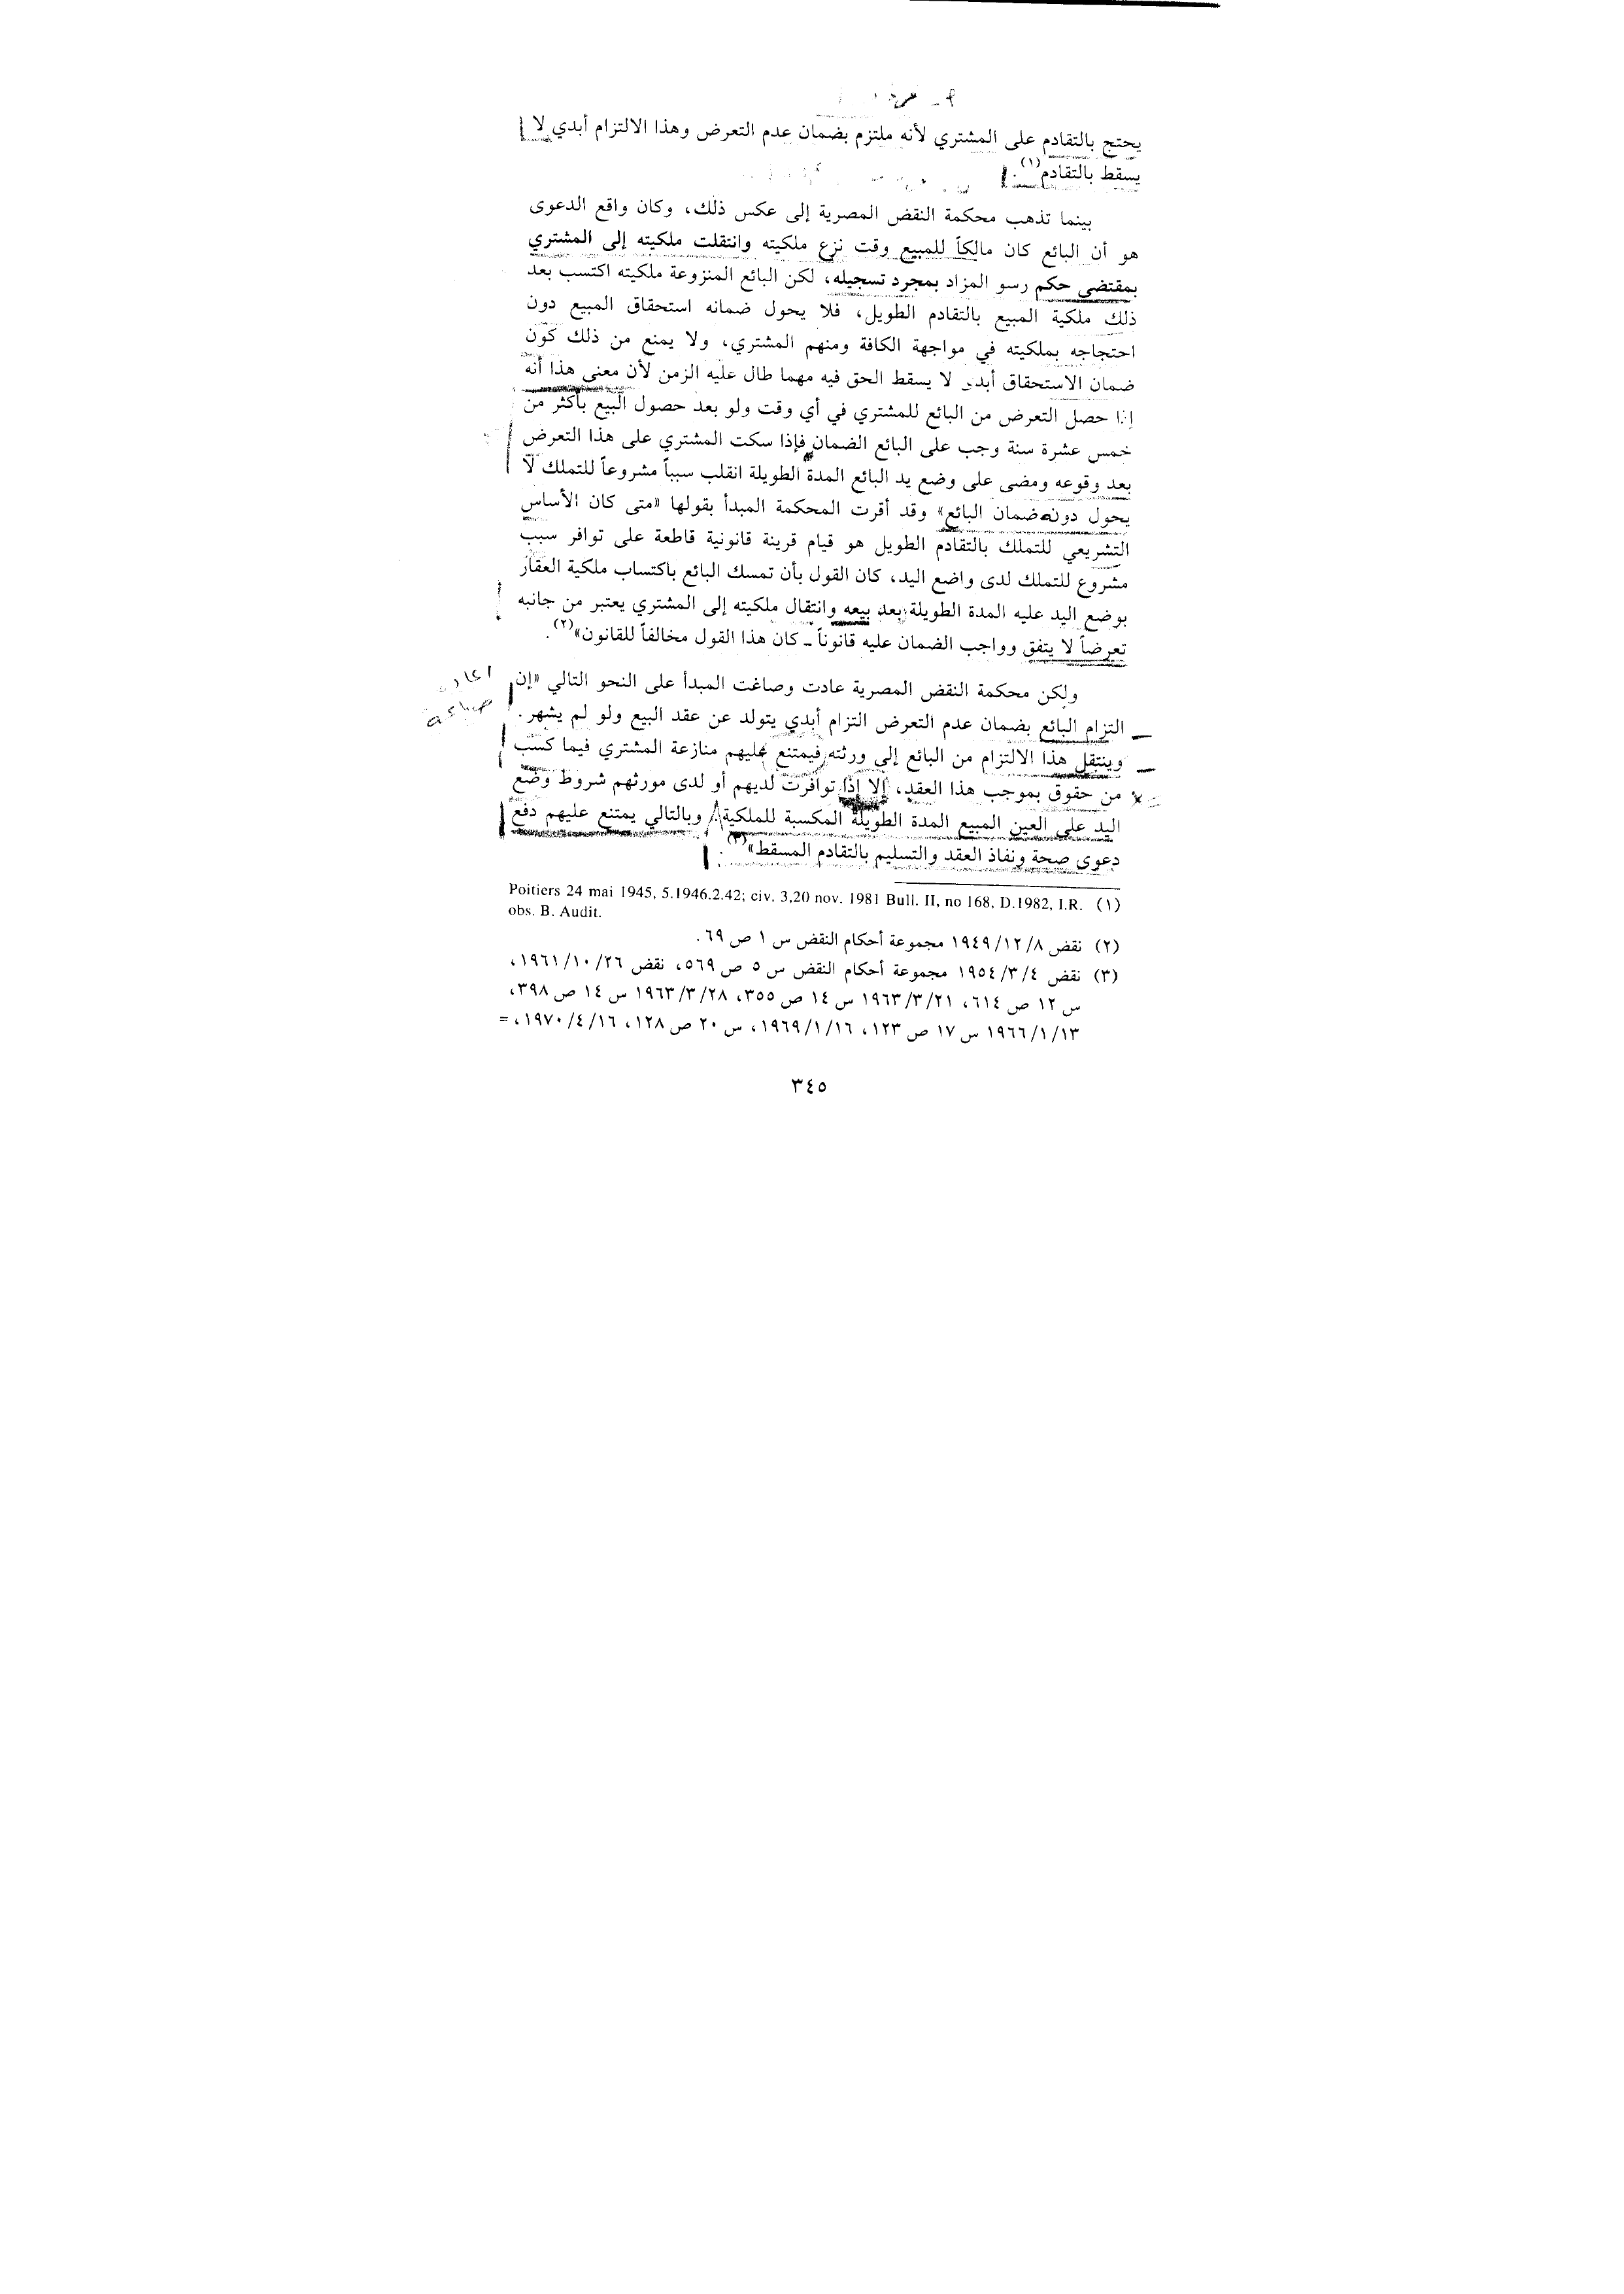 يحتج بالتقادم على المشتري لأنه ملتزم بضمان عدم التعرض وهذا الالتزام أبدي لا
يسقط بالتقادم(١).
بينما تذهب محكمة النقض المصرية إلى عكس ذلك، وكان واقع الدعوى
هو أن البائع كان مالكاً للمبيع وقت نزع ملكيته وانتقلت ملكيته إلى المشتري
بمقتضى حكم رسو المزاد بمجرد تسجيله، لكن البائع المنزوعة ملكيته اكتسب بعد
ذلك ملكية المبيع بالتقادم الطويل، فلا يحول ضمانه استحقاق المبيع دون
احتجاجه بملكيته في مواجهة الكافة ومنهم المشتري، ولا يمنع من ذلك كون
ضمان الاستحقاق أبدي لا يسقط الحق فيه مهما طال عليه الزمن لأن معنى هذا أنه
إذا حصل التعرض من البائع للمشتري في أي وقت ولو بعد حصول البيع بأكثر من
خمس عشرة سنة وجب على البائع الضمان فإذا سكت المشتري على هذا التعرض
بعد وقوعه ومضى على وضع يد البائع المدة الطويلة انقلب سبباً مشروعاً للتملك لا
يحول دونه ضمان البائع» وقد أقرت المحكمة المبدأ بقولها «متى كان الأساس
التشريعي للتملك بالتقادم الطويل هو قيام قرينة قانونية قاطعة على توافر سبب
مشروع للتملك لدى واضع اليد، كان القول بأن تمسك البائع باكتساب ملكية العقار
بوضع اليد عليه المدة الطويلة بعد بيعه وانتقال ملكيته إلى المشتري يعتبر من جانبه
تعرضاً لا يتفق وواجب الضمان عليه قانوناً ـ كان هذا القول مخالفاً للقانون»(٢).
ولكن محكمة النقض المصرية عادت وصاغت المبدأ على النحو التالي «إن
التزام البائع بضمان عدم التعرض التزام أبدي يتولد عن عقد البيع ولو لم يشهر.
وينتقل هذا الالتزام من البائع إلى ورثته فيمتنع عليهم منازعة المشتري فيما كسب
من حقوق بموجب هذا العقد، إلا إذا توافرت لديهم أو لدى مورثهم شروط وضع
اليد على العين المبيع المدة الطويلة المكسبة للملكية، وبالتالي يمتنع عليهم دفع
دعوى صحة ونفاذ العقد والتسليم بالتقادم المسقط»(٣).
(١) Poitiers 24 mai 1945, 5.1946.2.42; civ. 3,20 nov. 1981 Bull. II, no 168, D.1982, I.R.
obs. B. Audit.
(٢) نقض ١٩٤٩/١٢/٨ مجموعة أحكام النقض س ١ ص ٦٩.
(٣) نقض ١٩٥٤/٣/٤ مجموعة أحكام النقض س ٥ ص ٥٦٩، نقض ١٩٦١/١٠/٢٦،
س ١٢ ص ٦١٤، ١٩٦٣/٣/٢١ س ١٤ ص ٣٥٥، ١٩٦٣/٣/٢٨ س ١٤ ص ٣٩٨،
١٩٦٦/١/١٣ س ١٧ ص ١٢٣، ١٩٦٩/١/١٦، س ٢٠ ص ١٢٨، ١٩٧٠/٤/١٦، =
٣٤٥